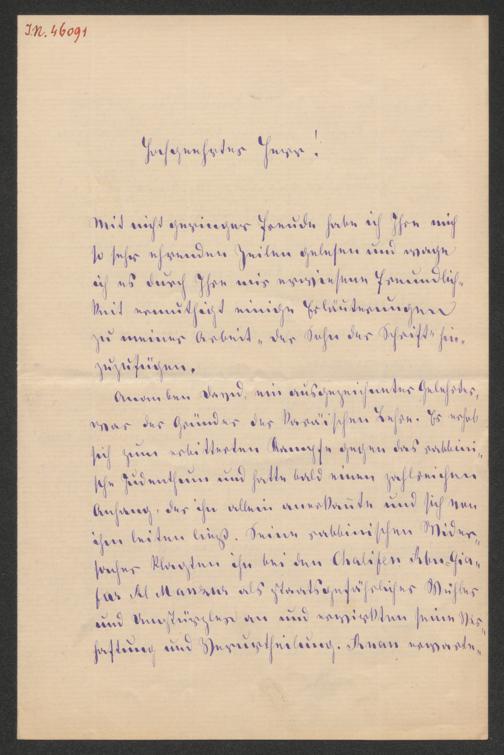 I.N. 46091
Hochgeehrter Herr!
Mit nicht geringer Freude habe ich Ihre mich
so sehr ehrenden Zeilen gelesen und wage
ich es durch Ihre mir erwiesene Freundlich-
keit ermuthigt einige Erläuterungen
zu meiner Arbeit „Der Sohn der Schrift“ hin-
zuzufügen.
Anan ben David, ein ausgezeichneter Gelehrter,
war der Gründer der Karäischen Lehre. Er erhob
sich zum erbitterten Kampfe gegen das rabbini-
sche Judenthum und hatte bald einen zahlreichen
Anhang, der ihn allein anerkannte und sich von
ihm leiten ließ. Seine rabbinischen Wider-
sacher klagten ihn bei dem Chalifen
Al Manzur als staatsgefährlicher Wühler
und Umstürzler an und erwirkten seine Ver-
haftung und Verurtheilung. Anan erwarte-